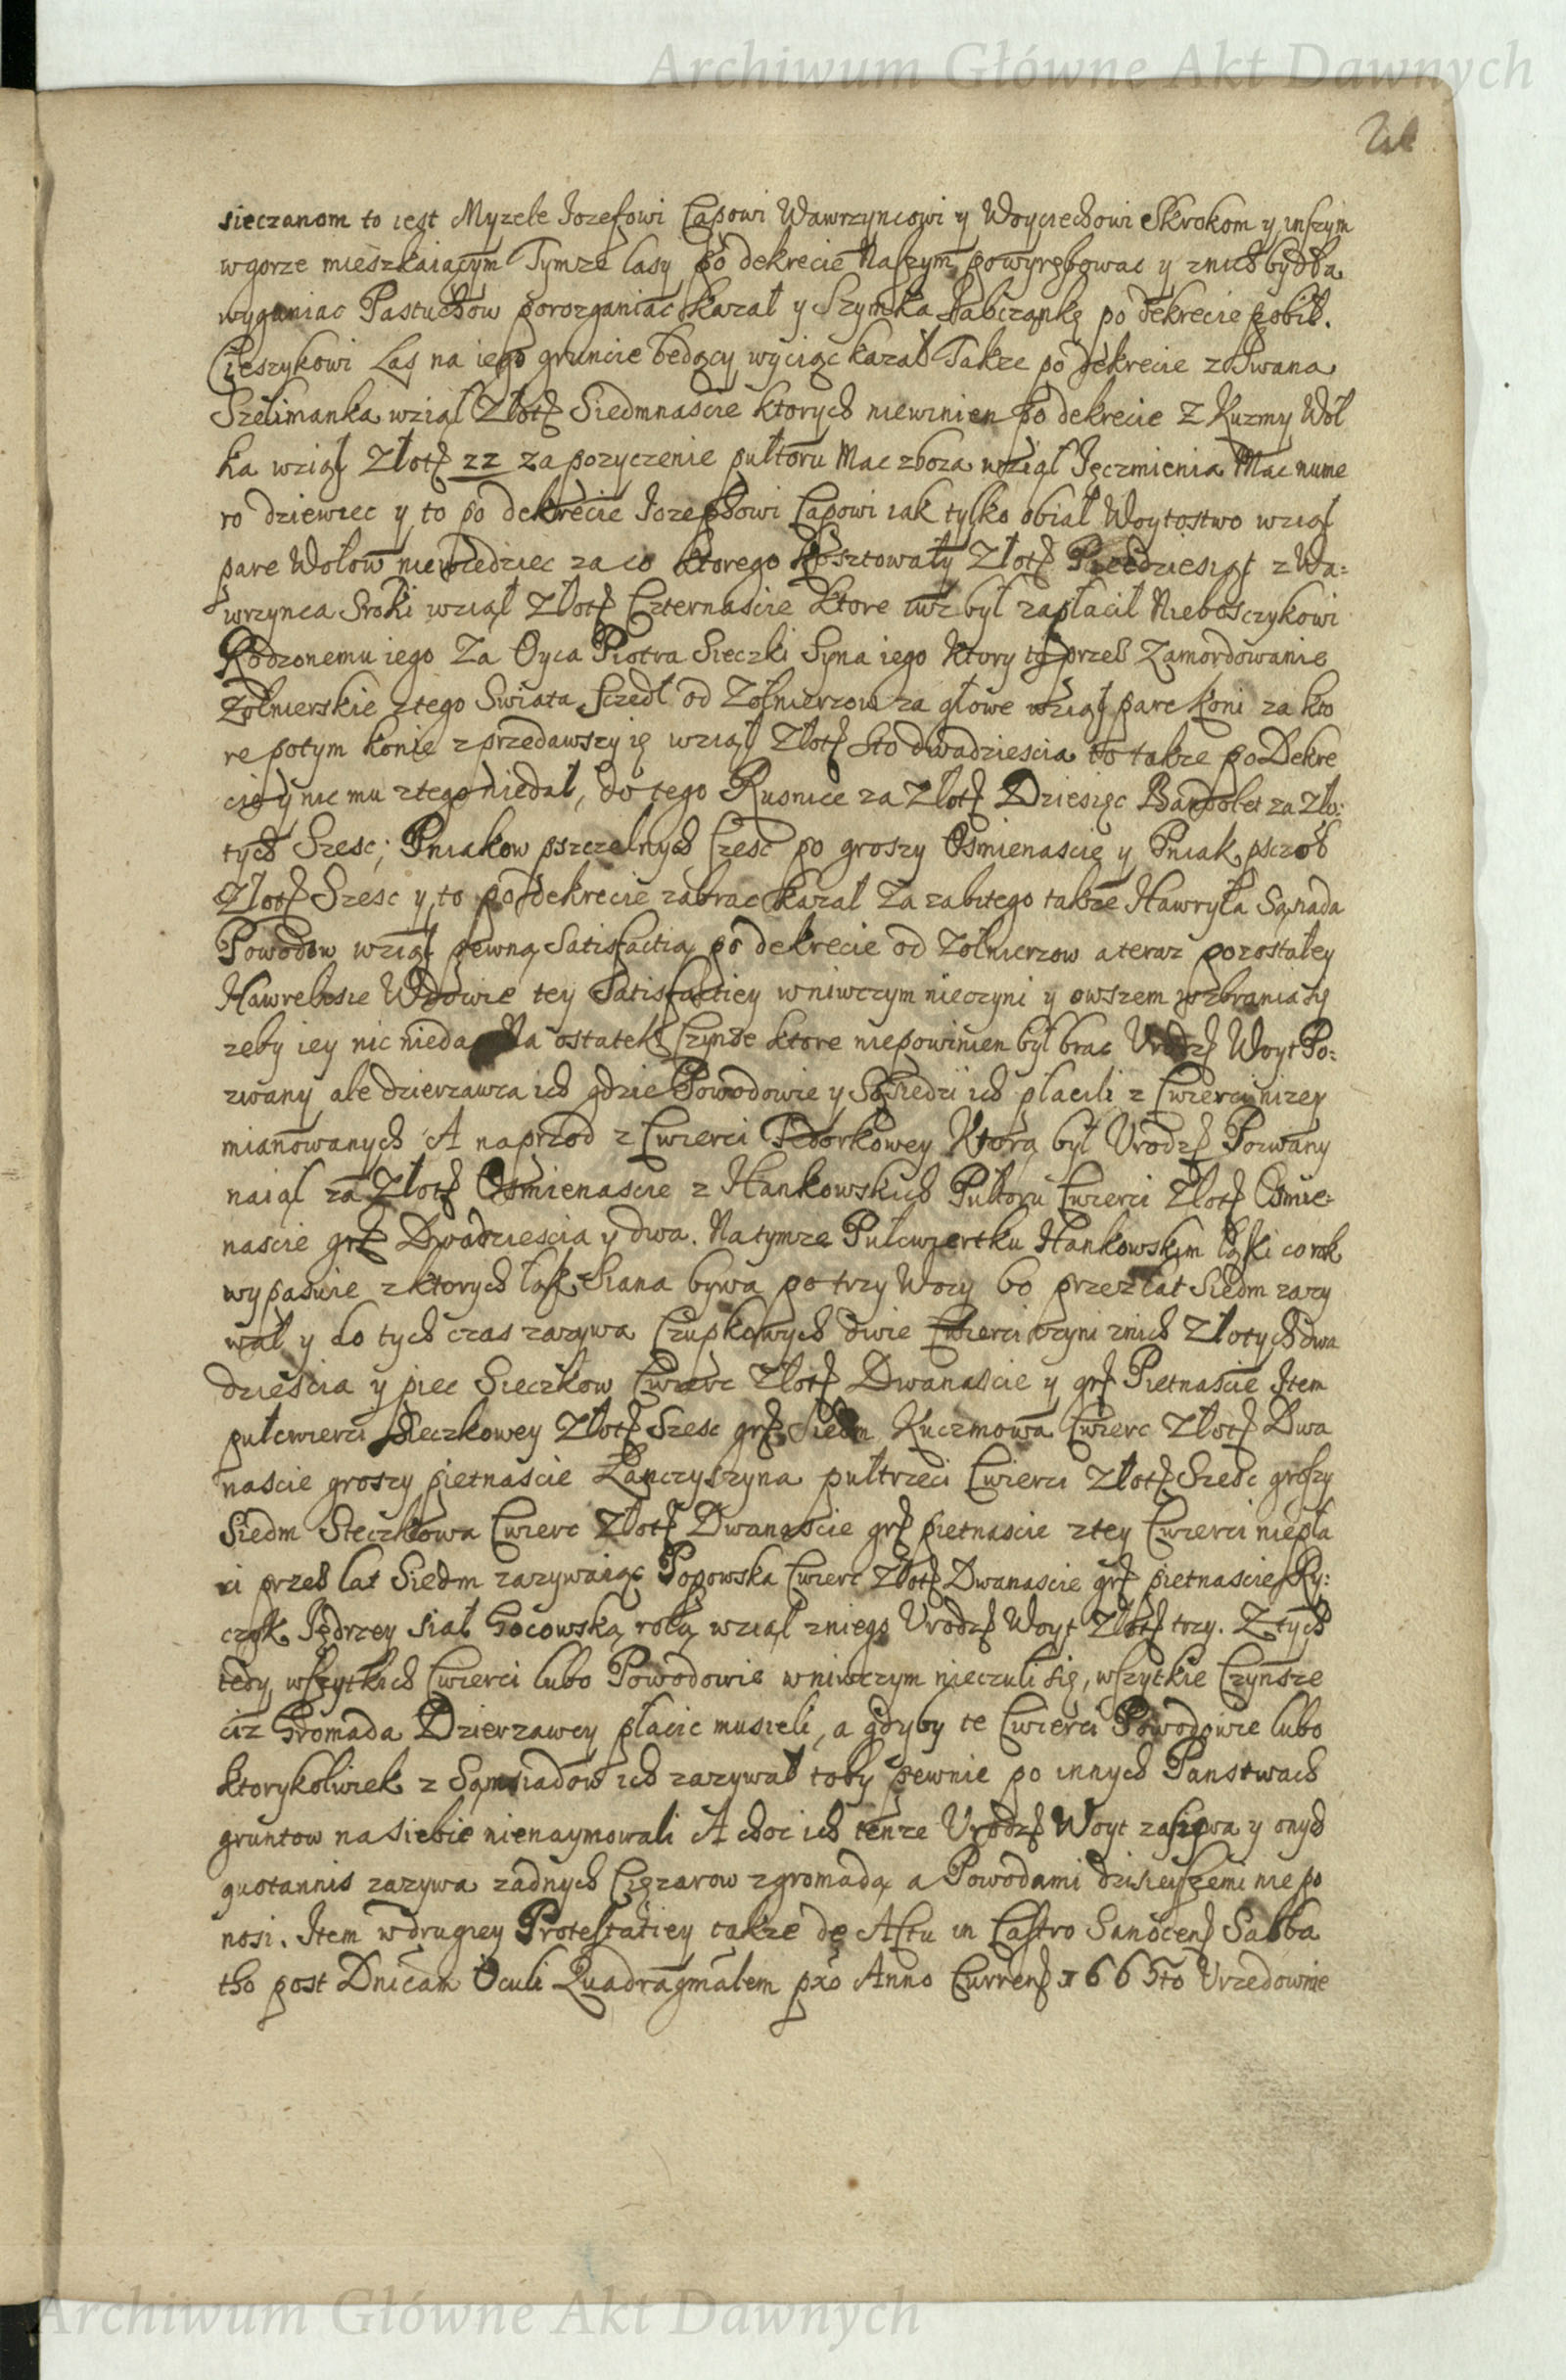 Archiwum Główne Akt Dawnych
sieczanom to iest Myzele Iozefowi Capowi Wawrzyncowi y Woyciechowi Skrokom y inszym
wgorze mieszkaiącym Tymze lasy po dekrecie Naszym powyrębowac y znich bydła
wyganiac Pastuchow porozganiac kazał y Szymka po dekrecie pobił.
Cieszykowi Las na iego gruncie bedący wyciąc kazał Takze po dekrecie z Iwana
Szelimanka wziął Złotſ Siedmnascie ktorych niewinien po dekrecie Z Kuzmy Woł
ka wziął Złotſ 22 za pozyczenie pułtoru Mac zboza wziął Ięczmienia Mac nume
ro dziewiec y to po dekrecie Iozephowi Capowi iak tylko obiał Woytostwo wziął
pare Wołow niewiedziec za co ktorego kosztowały Złotſ Piecdziesiąt z Wa:
wrzynca Sroki wziął Złotſ Czternascie ktore iuz był zapłacił Nieboszczykowi
Rodzonemu iego Za Oyca Piotra Sieczki Syna iego Ktory to przez Zamordowanie
Zołnierskie ztego Swiata szedł od Zołnierzow za głowe wziął pare koni za kto
re potym konie zprzedawszy ie wziął Złotſ Sto dwadziescia to takze po Dekre
cie y nic mu ztego niedał, do tego Rusnice za Złotſ Dziesięc Bandolet za Zło:
tych Szesc; Pniakow pszczelnych Czesc po groszy Osmienascie y Pniak pszczoł
Złotſ Szesc y to po dekrecie zabrac kazał Za zabitego takze Hawryła Sąsiada
Powodow wziął pewną Satisfactią po dekrecie od Zołnierzow a teraz pozostałey
Wdowie tey Satisfactiey wniwczym nieczyni y owszem wzbrania się
zeby iey nic nieda Na ostatek Czynsze ktore niepowinien był brac Urodzſ Woyt Po:
zwany ale dzierzawca ich gdzie Powodowie y Sąsiedzi ich płacili z Cwierci nizey
mianowanych A naprzod z Cwierci Fedorkowey Ktorą był Urodzſ Pozwany
naiął za Złotſ Osmienascie z Hankowskich Pułtoru Cwierci Złotſ Osmie:
nascie grſ Dwadziescia y dwa. Natymze Pułcwiertku Hankowskim łąki co rok
wypasuie z ktorych łąk Siana bywa po trzy Wozy bo przez lat Siedm zazy
wał y do tych czas zazywa Czupkowych dwie Cwierci czyni znich Złotych dwa
dziescia y piec Sieczkow Cwierc Złotſ Dwanascie y grſ Pietnascie Item
pułcwierci Sieczkowey Złotſ Szesc grſ Siedm Kuczmowa Cwierc Złotſ Dwa
nascie groszy pietnascie Łanczyszyna pułtrzeci Cwierci Złotſ Szesc groszy
Siedm Steczkowa Cwierc Złotſ Dwanascie grſ pietnascie ztey Cwierci niepła
ci przez lat Siedm zazywaiąc Popowska Cwierc Złotſ Dwanascie grſ pietnascie Ry:
czok Iędrzey siał Gocowską rolą wziął zniego Urodzſ Woyt Złotſ trzy. Z tych
tedy wszytkich Cwierci lubo Powodowie wniwczym nieczuli się, wszytkie Czynsze
ciz Gromada Dzierzawcy płacic musieli, a gdyby te Cwierci Powodowie lubo
ktorykolwiek z Sąmsiadow ich zazywał toby pewnie po innych Panstwach
gruntow na siebie nienaymowali A choc ich tenze Urodzſ Woyt zasiewa y onych
quotannis zazywa zadnych Cięzarow z gromadą a Powodami dzisieyszemi nie po
nosi. Item wdrugiey Protestatiey takze de Actu in Castro Sanocenſ Sabba
tho post Dnicam Oculi Quadragmalem pxo Anno Currenſ 1665to Urzedownie
Archiwum Główne Akt Dawnych